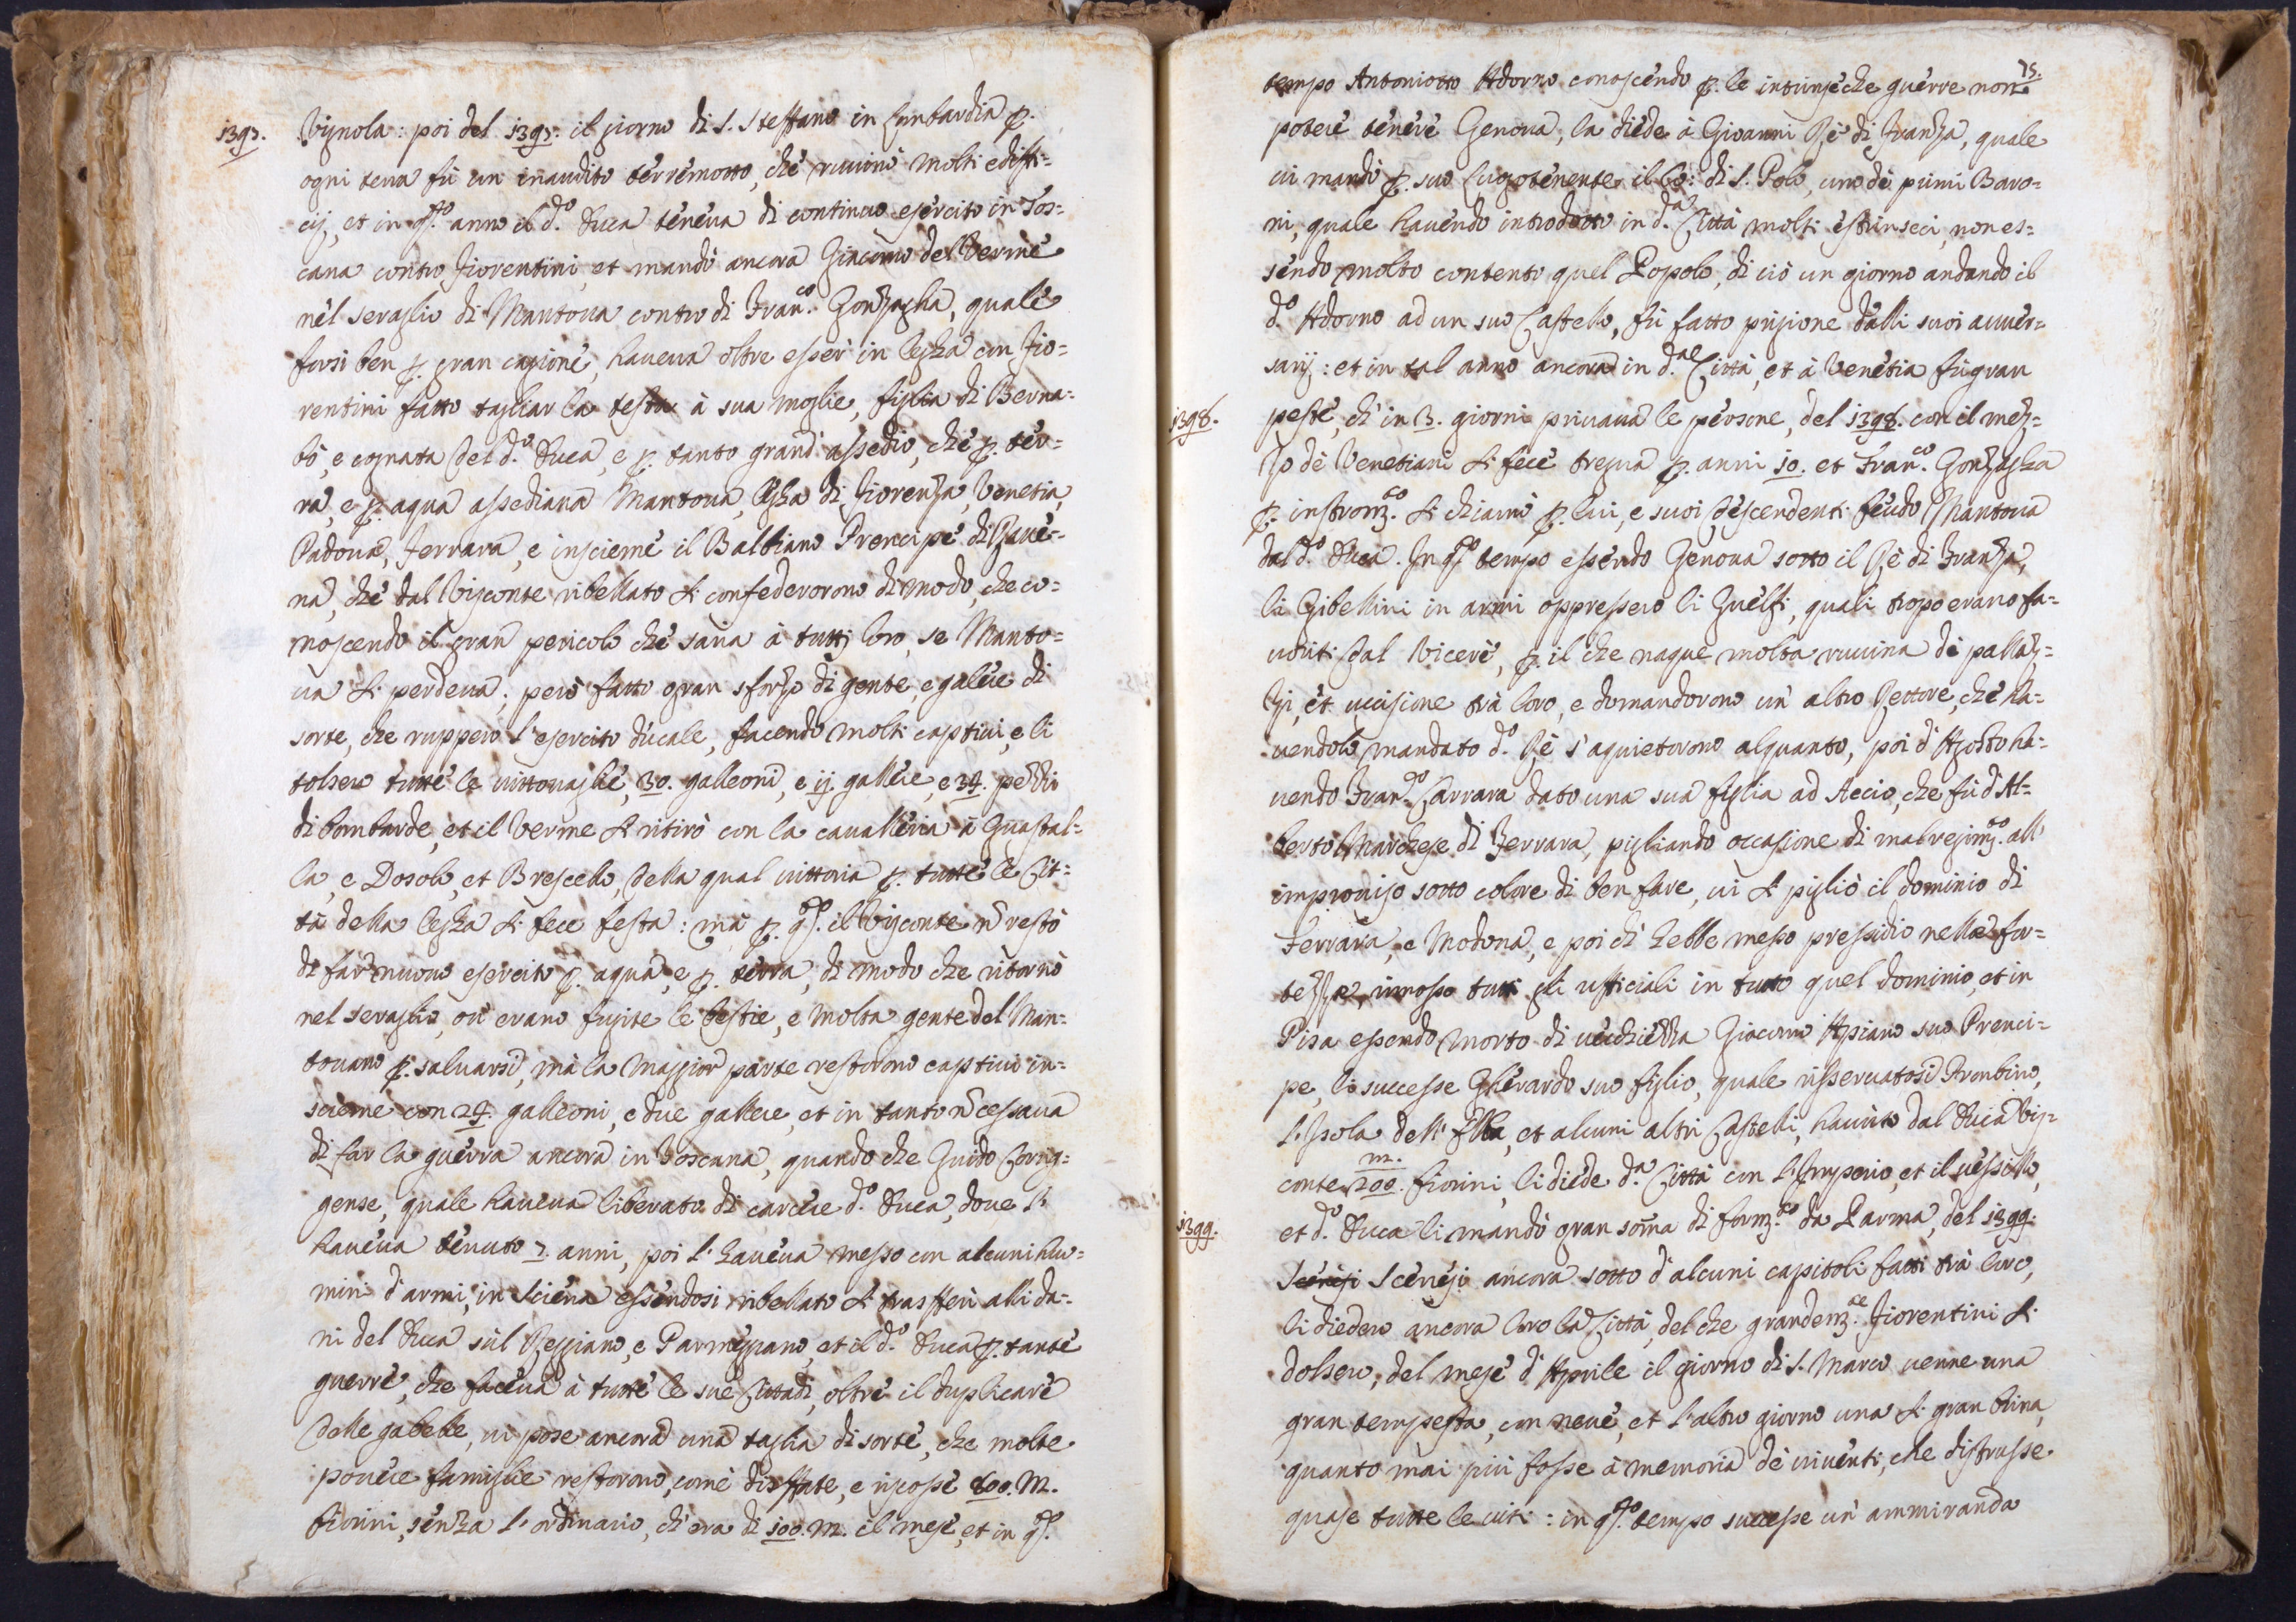 1397. Vignola: poi del 1397. il giorno di S. Steffano in Lombardia p.
ogni terra fù un inaudito terremotto, che ruuinò molti edifi=
cij, et in q.sto anno il d.o Duca teneua di continuo esercito in Tos=
cana contro Fiorentini, et mandò ancora Giacomo del Verme
nel seraglio di Mantoua contro di Fran.co Gonzagha, quale
forsi ben p. gran cagione, haueua oltre esser in legha con Fio=
rentini fatto tagliar la testa à sua moglie, figlia di Berna=
bò, e cognata del d.o Duca, e p. tanto grand' assedio, che p. ter=
ra, e p. aqua assediaua Mantoua, legha di Fiorenza, Venetia,
Padoua, Ferrara, e insieme il Balbiano Prencipe di Raue=
na, che dal Visconte ribellato si confederorono di modo, che co=
noscendo il gran pericolo che saria à tutti loro, se Manto=
ua si perdeua; però fatto gran sforzo di gente, e galere di
sorte, che ruppero l'esercito ducale, facendo molti captiui, e li
tolsero tutte le uittouaglie, 30. galleoni, e ij. gallere, e 34. pezzi
di bombarde, et il Verme si ritirò con la caualleria à Guastal=
la, e Dosolo, et Brescello, della qual uittoria p. tutte le Cit=
tà della legha si fece festa: mà p. q.sto il Visconte nõ restò
di far nuouo esercito p. aqua, e p. terra, di modo che ritornò
nel seraglio, ou' erano fugite le bestie, e molta gente del Man=
touano p. saluarsi, mà la maggior parte restorono captiui in=
scieme con 24. galleoni, e due gallere, et in tanto nõ cessaua
di far la guerra ancora in Toscana, quando che Guido Coreg=
gense, quale haueua liberato di carcere d.o Duca, doue l'
haueua tenuto 7. anni, poi l'haueua messo con alcuni huo=
mini d'armi, in Sciena essendosi ribellato si trasfferì alli da=
ni del Duca sul Reggiano, e Parmeggiano, et il d.o Duca p. tante
guerre, che faceua à tutte le sue Cittadi, oltre il duplicare
delle gabelle, ui pose ancora una taglia di sorte, che molte
pouere famiglie restorono, come disffate, e riscosse 600. m.
fiorini, senza l'ordinario, ch'era di 100. m. il mese, et in q.sto
75.
tempo Antoniotto Adorno conoscendo p. le intrinseche guerre non
potere tenere Genoua, la diede à Giouanni Rè di Franza, quale
ui mandò p. suo Lugotenente il Co: di S. Polo, uno de primi Baro=
ni, quale hauendo introdotto in d.a Città molti estrinseci, non es=
sendo molto contento quel Popolo, di ciò un giorno andando il
d.o Adorno ad un suo Castello, fù fatto prigione dalli suoi auuer=
sarij: et in tal anno ancora in d.a Città, et à Venetia fù gran
1398. peste, ch' in 3. giorni priuaua le persone, del 1398. con il mez=
zo de Venetiani si fece tregua p. anni 10. et Fran.co Gonzagha
p. instrom.to si chiamò p. lui, e suoi descendenti feudo Mantoua
dal d.o Duca. In q.sto tempo essendo Genoua sotto il Rè di Franza,
li Gibellini in armi oppressero li Guelfi, quali tropo erano fa=
uoriti dal Vicerè, p. il che naque molta ruuina di pallaz=
zi, et uccisione trà loro, e domandorono un' altro Rettore, che ha=
uendolo mandato d.o Rè s'aquietorono alquanto, poi d'Agosto ha=
uendo Fran.co Carrara dato una sua figlia ad Accio, che fù d'Al=
berto Marchese di Ferrara, pigliando occasione di mal regim.to all'
improuiso sotto colore di ben fare, ui si pigliò il dominio di
Ferrara, e Modona, e poi ch' hebbe messo pressidio nelle for=
tezze, rimosse tutti gli ufficiali in tutto quel dominio, et in
Pisa essendo morto di uecchiezza Giacomo Apiano suo Prenci=
pe, li successe Gherardo suo figlio, quale risseruatosi Trombino,
l'Isola dell' Elba, et alcuni altri Castelli, hauuto dal Duca Vis=
conte 200.m. fiorini, li diede d.a Città con l'Imperio, et il uessillo,
et d.o Duca li mandò gran soma di form.to da Parma, del 1399.
1399. Scenesi ancora sotto d'alcuni capitoli fatti trà loro,
li diedero ancora loro la Città, del che grandem.te Fiorentini si
dolsero; del mese d'Aprile il giorno di S. Marco uenne una
gran tempesta, con neue, et l'altro giorno una si gran brina,
quanto mai più fosse à memoria de uiuenti, che distrusse
quase tutte le uiti: in q.sto tempo successe un' ammiranda